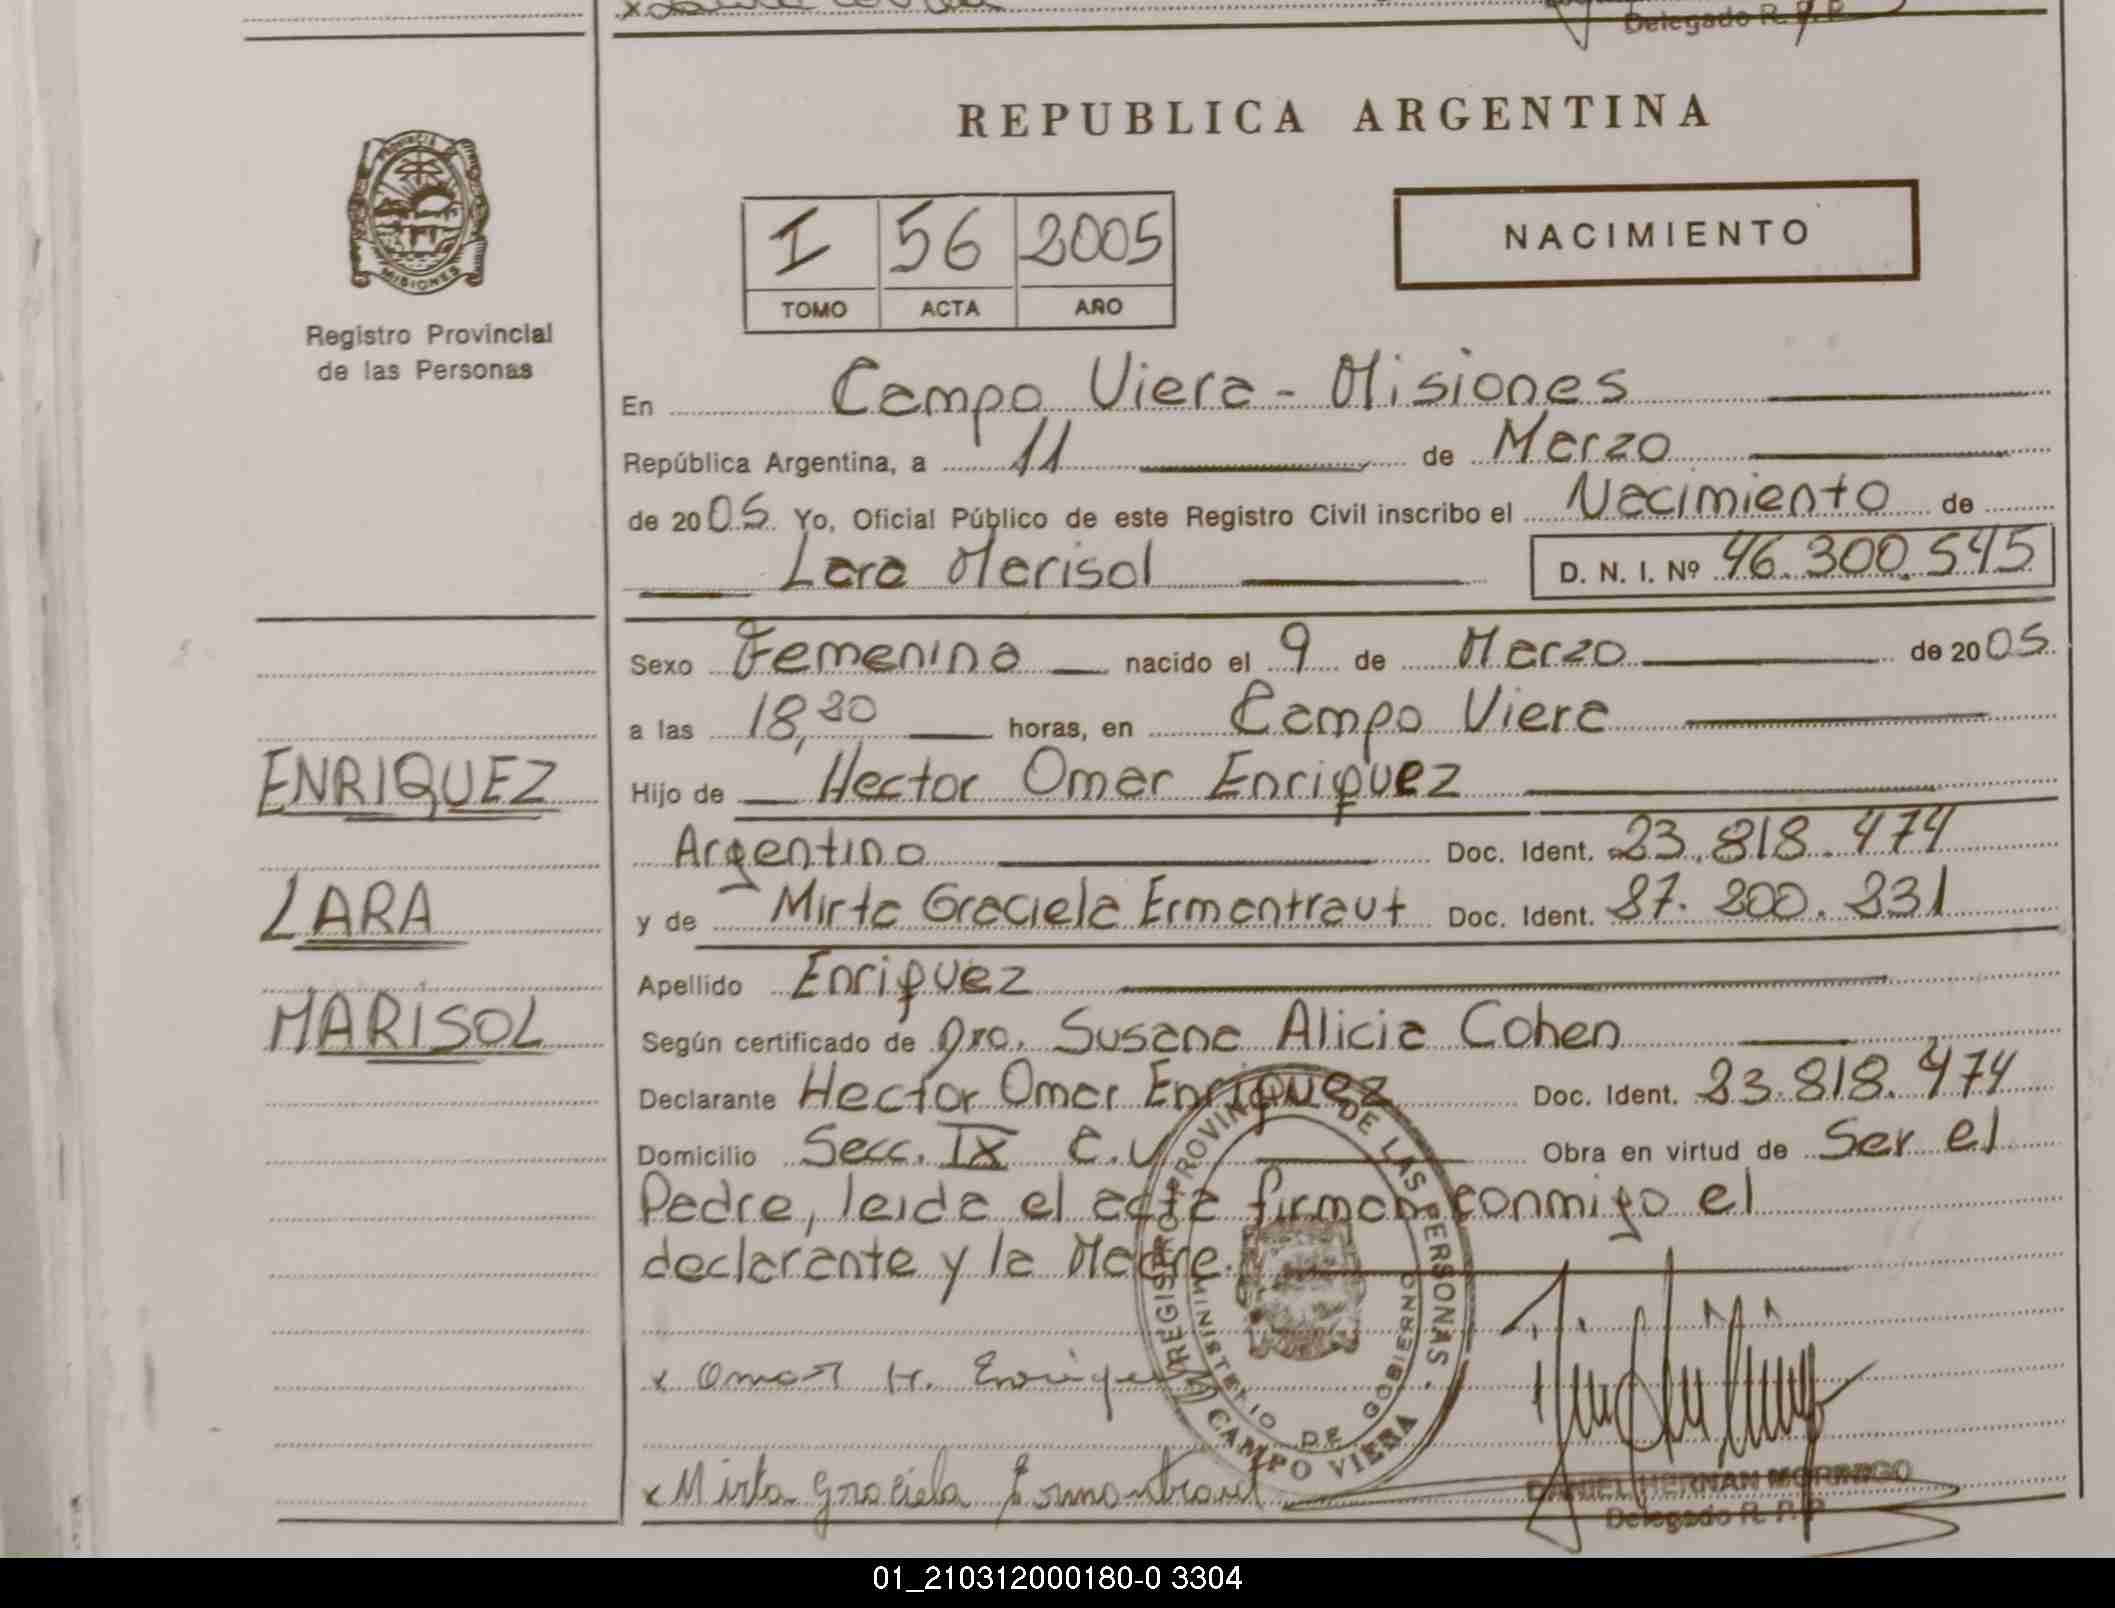 Delegado R. P. P.
REPUBLICA ARGENTINA
PROVINCIA DE
MISIONES
Registro Provincial
de las Personas
I 56 2005
TOMO ACTA AÑO
NACIMIENTO
En Campo Viera - Misiones
República Argentina, a 11 de Marzo
de 2005 Yo, Oficial Público de este Registro Civil inscribo el Nacimiento de
Lara Marisol D. N. I. Nº 46.300.545
Sexo Femenino nacido el 9 de Marzo de 2005
a las 18,20 horas, en Campo Viera
ENRIQUEZ
Hijo de Hector Omar Enriquez
Argentino Doc. Ident. 23.818.474
LARA
y de Mirta Graciela Ermantraut Doc. Ident. 27.200.231
Apellido Enriquez
MARISOL
Según certificado de Dra. Susana Alicia Cohen
Declarante Hector Omar Enriquez Doc. Ident. 23.818.474
Domicilio Secc. IX C.V. Obra en virtud de Ser el
Padre, leida el acta firman conmigo el
declarante y la Madre.
REGISTRO PROVINCIAL DE LAS PERSONAS
MINISTERIO DE GOBIERNO
CAMPO VIERA
x Omar H. Enriquez
x Mirta Graciela Ermantraut
DANIEL HERNAN MORINIGO
Delegado R. P. P.
01_210312000180-0 3304